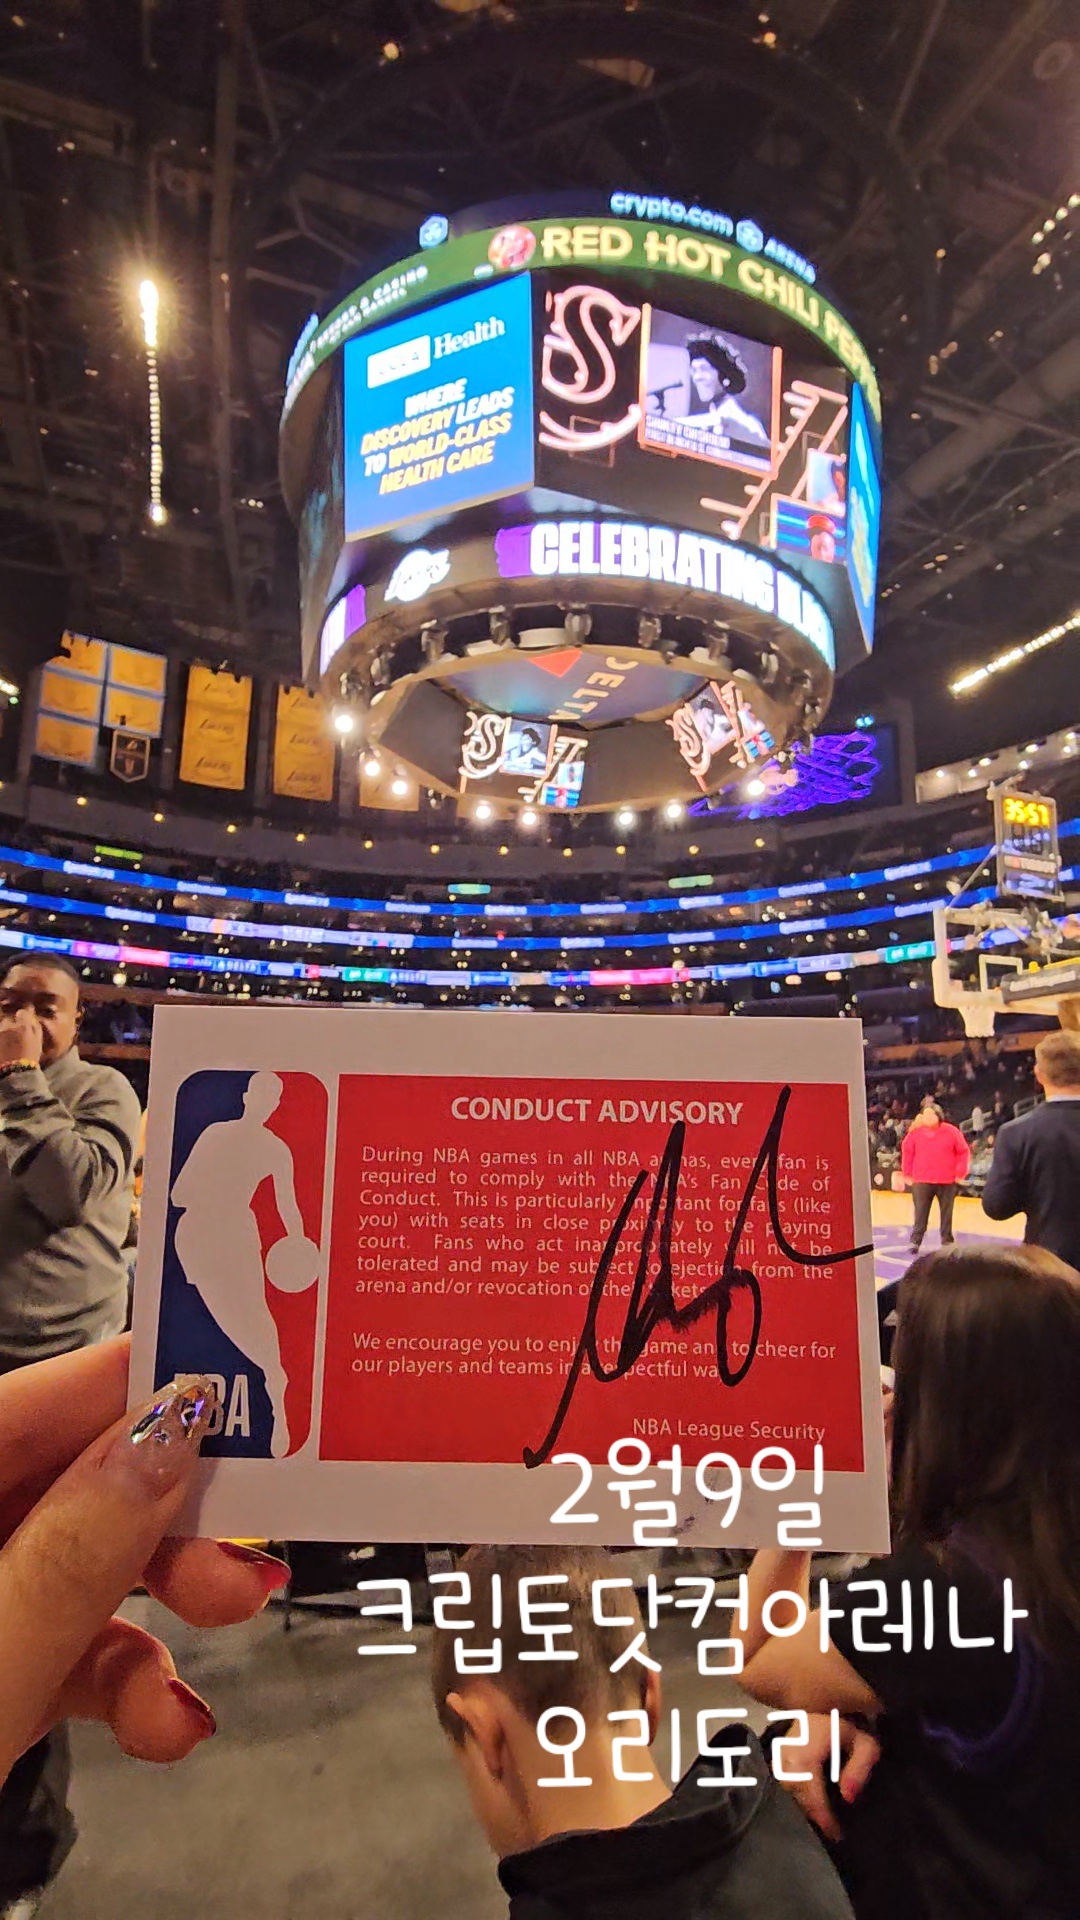 crypto.com ARENA
RED HOT CHILI PEPP
Health
WHERE
DISCOVERY LEADS
TO WORLD-CLASS
HEALTH CARE
Lakers
CELEBRATING BLAC
DELTA
35:57
CONDUCT ADVISORY
During NBA games in all NBA arenas, every fan is
required to comply with the NBA's Fan Code of
Conduct. This is particularly important for fans (like
you) with seats in close proximity to the playing
court. Fans who act inappropriately will not be
tolerated and may be subject to ejection from the
arena and/or revocation of their tickets.
We encourage you to enjoy the game and to cheer for
our players and teams in a respectful way.
NBA League Security
NBA
2월9일
크립토닷컴아레나
오리도리